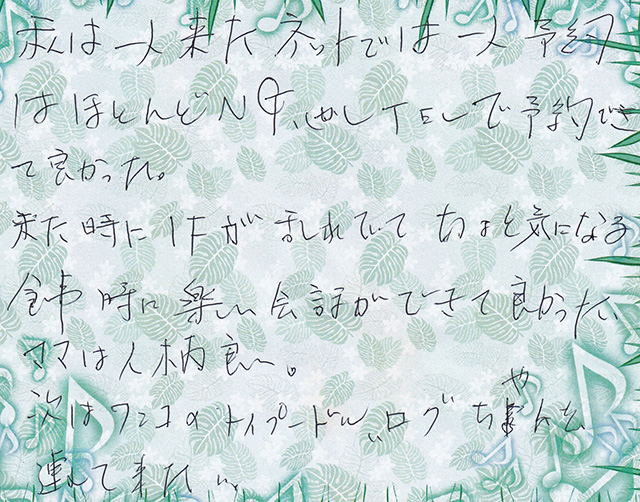 私は一人来たネットでは一人予約
はほとんどNG、しかしTELで予約でき
て良かった。
来た時に1Fが乱れていて ちょと気になる
食事時に楽しい会話ができて良かった、
ママは人柄良い。
次はワンコのトイプードル"ログ"ちゃんを
連れて来たい。